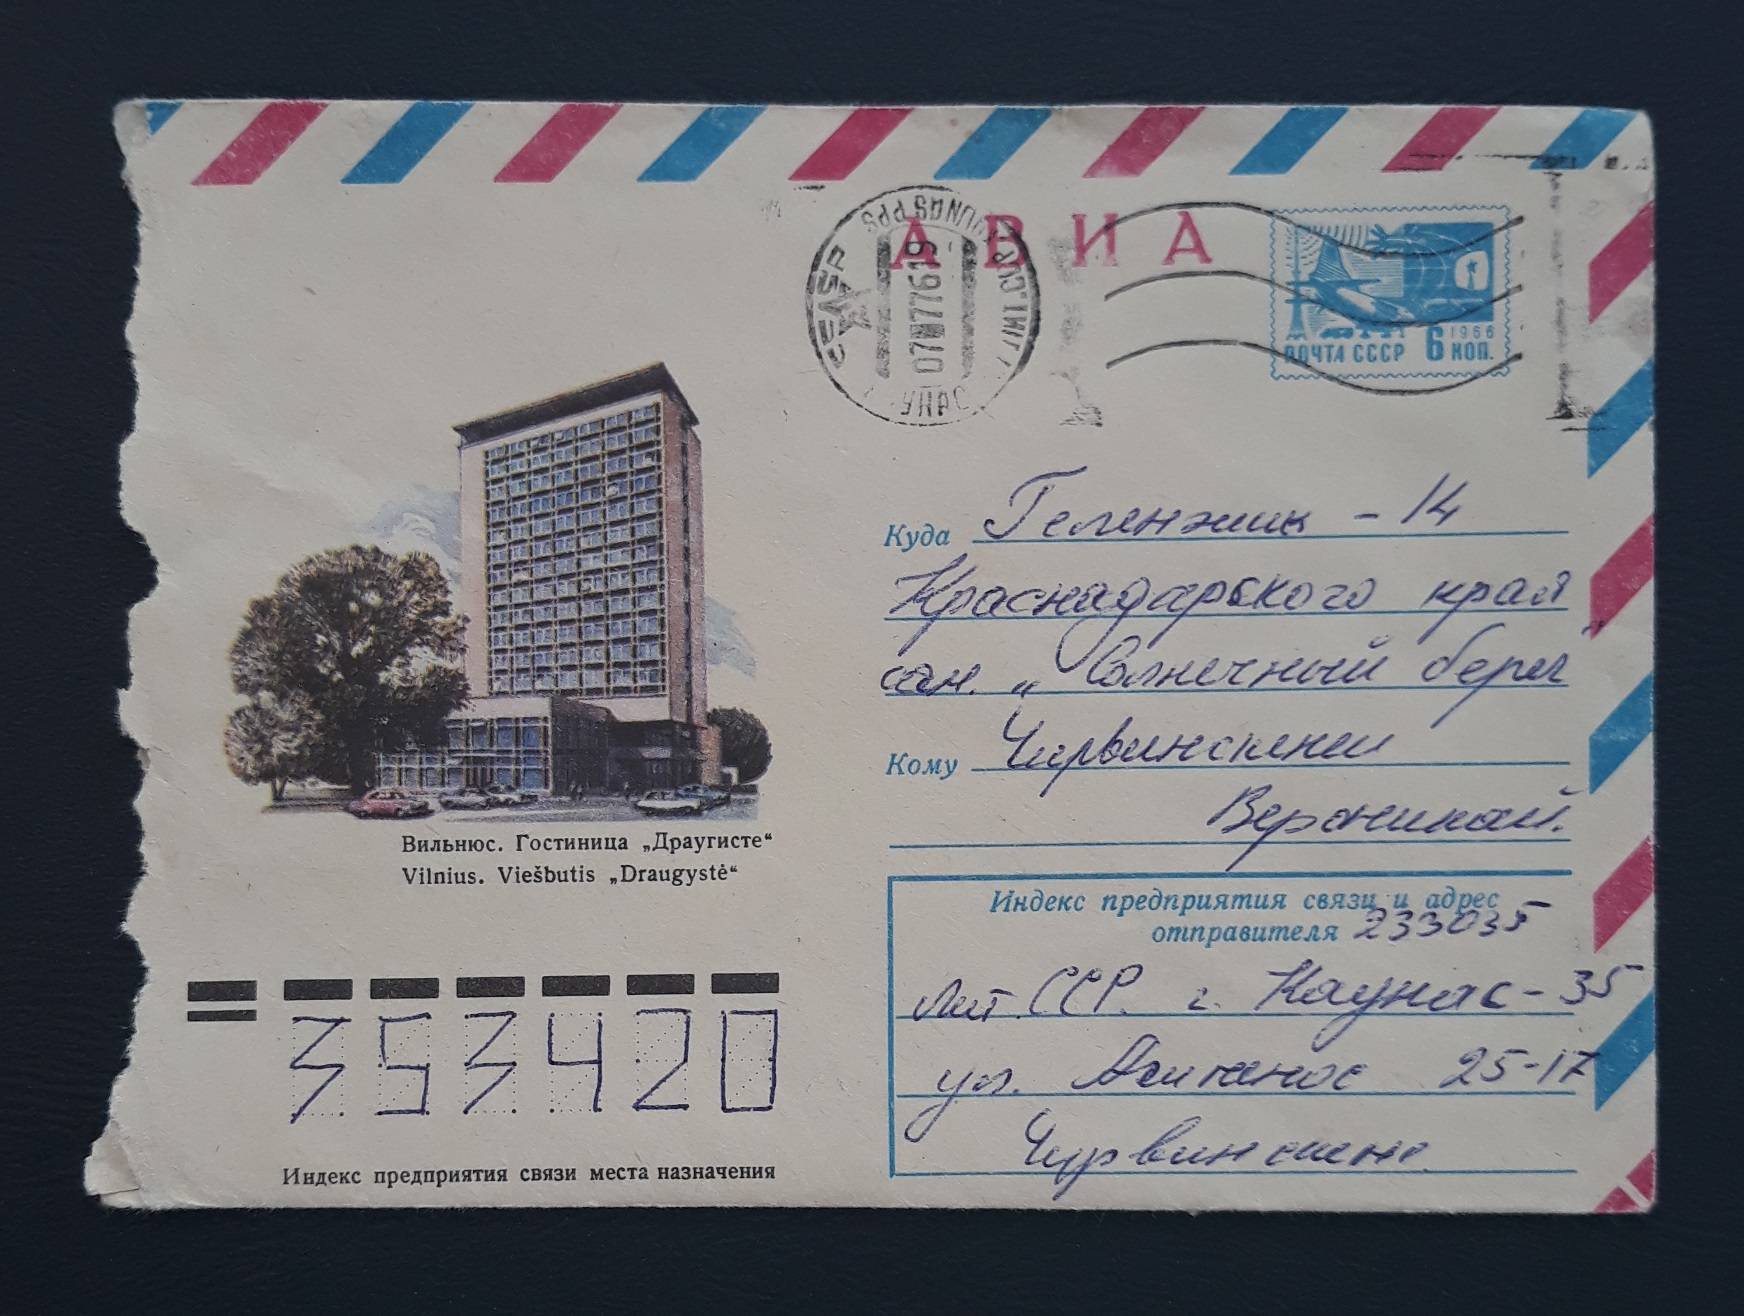 АВИА
1966
ПОЧТА СССР 6 КОП.
KAUNAS PPS
Куда Геленжик - 14
Краснадарского края
сан. „Солнечный берег"
Кому
Вероникай.
Вильнюс. Гостиница „Драугисте“
Vilnius. Viešbutis „Draugystė“
Индекс предприятия связи и адрес
отправителя 233035
Лит. ССР. г. Каунас-35
ул. 25-17
353420
Индекс предприятия связи места назначения